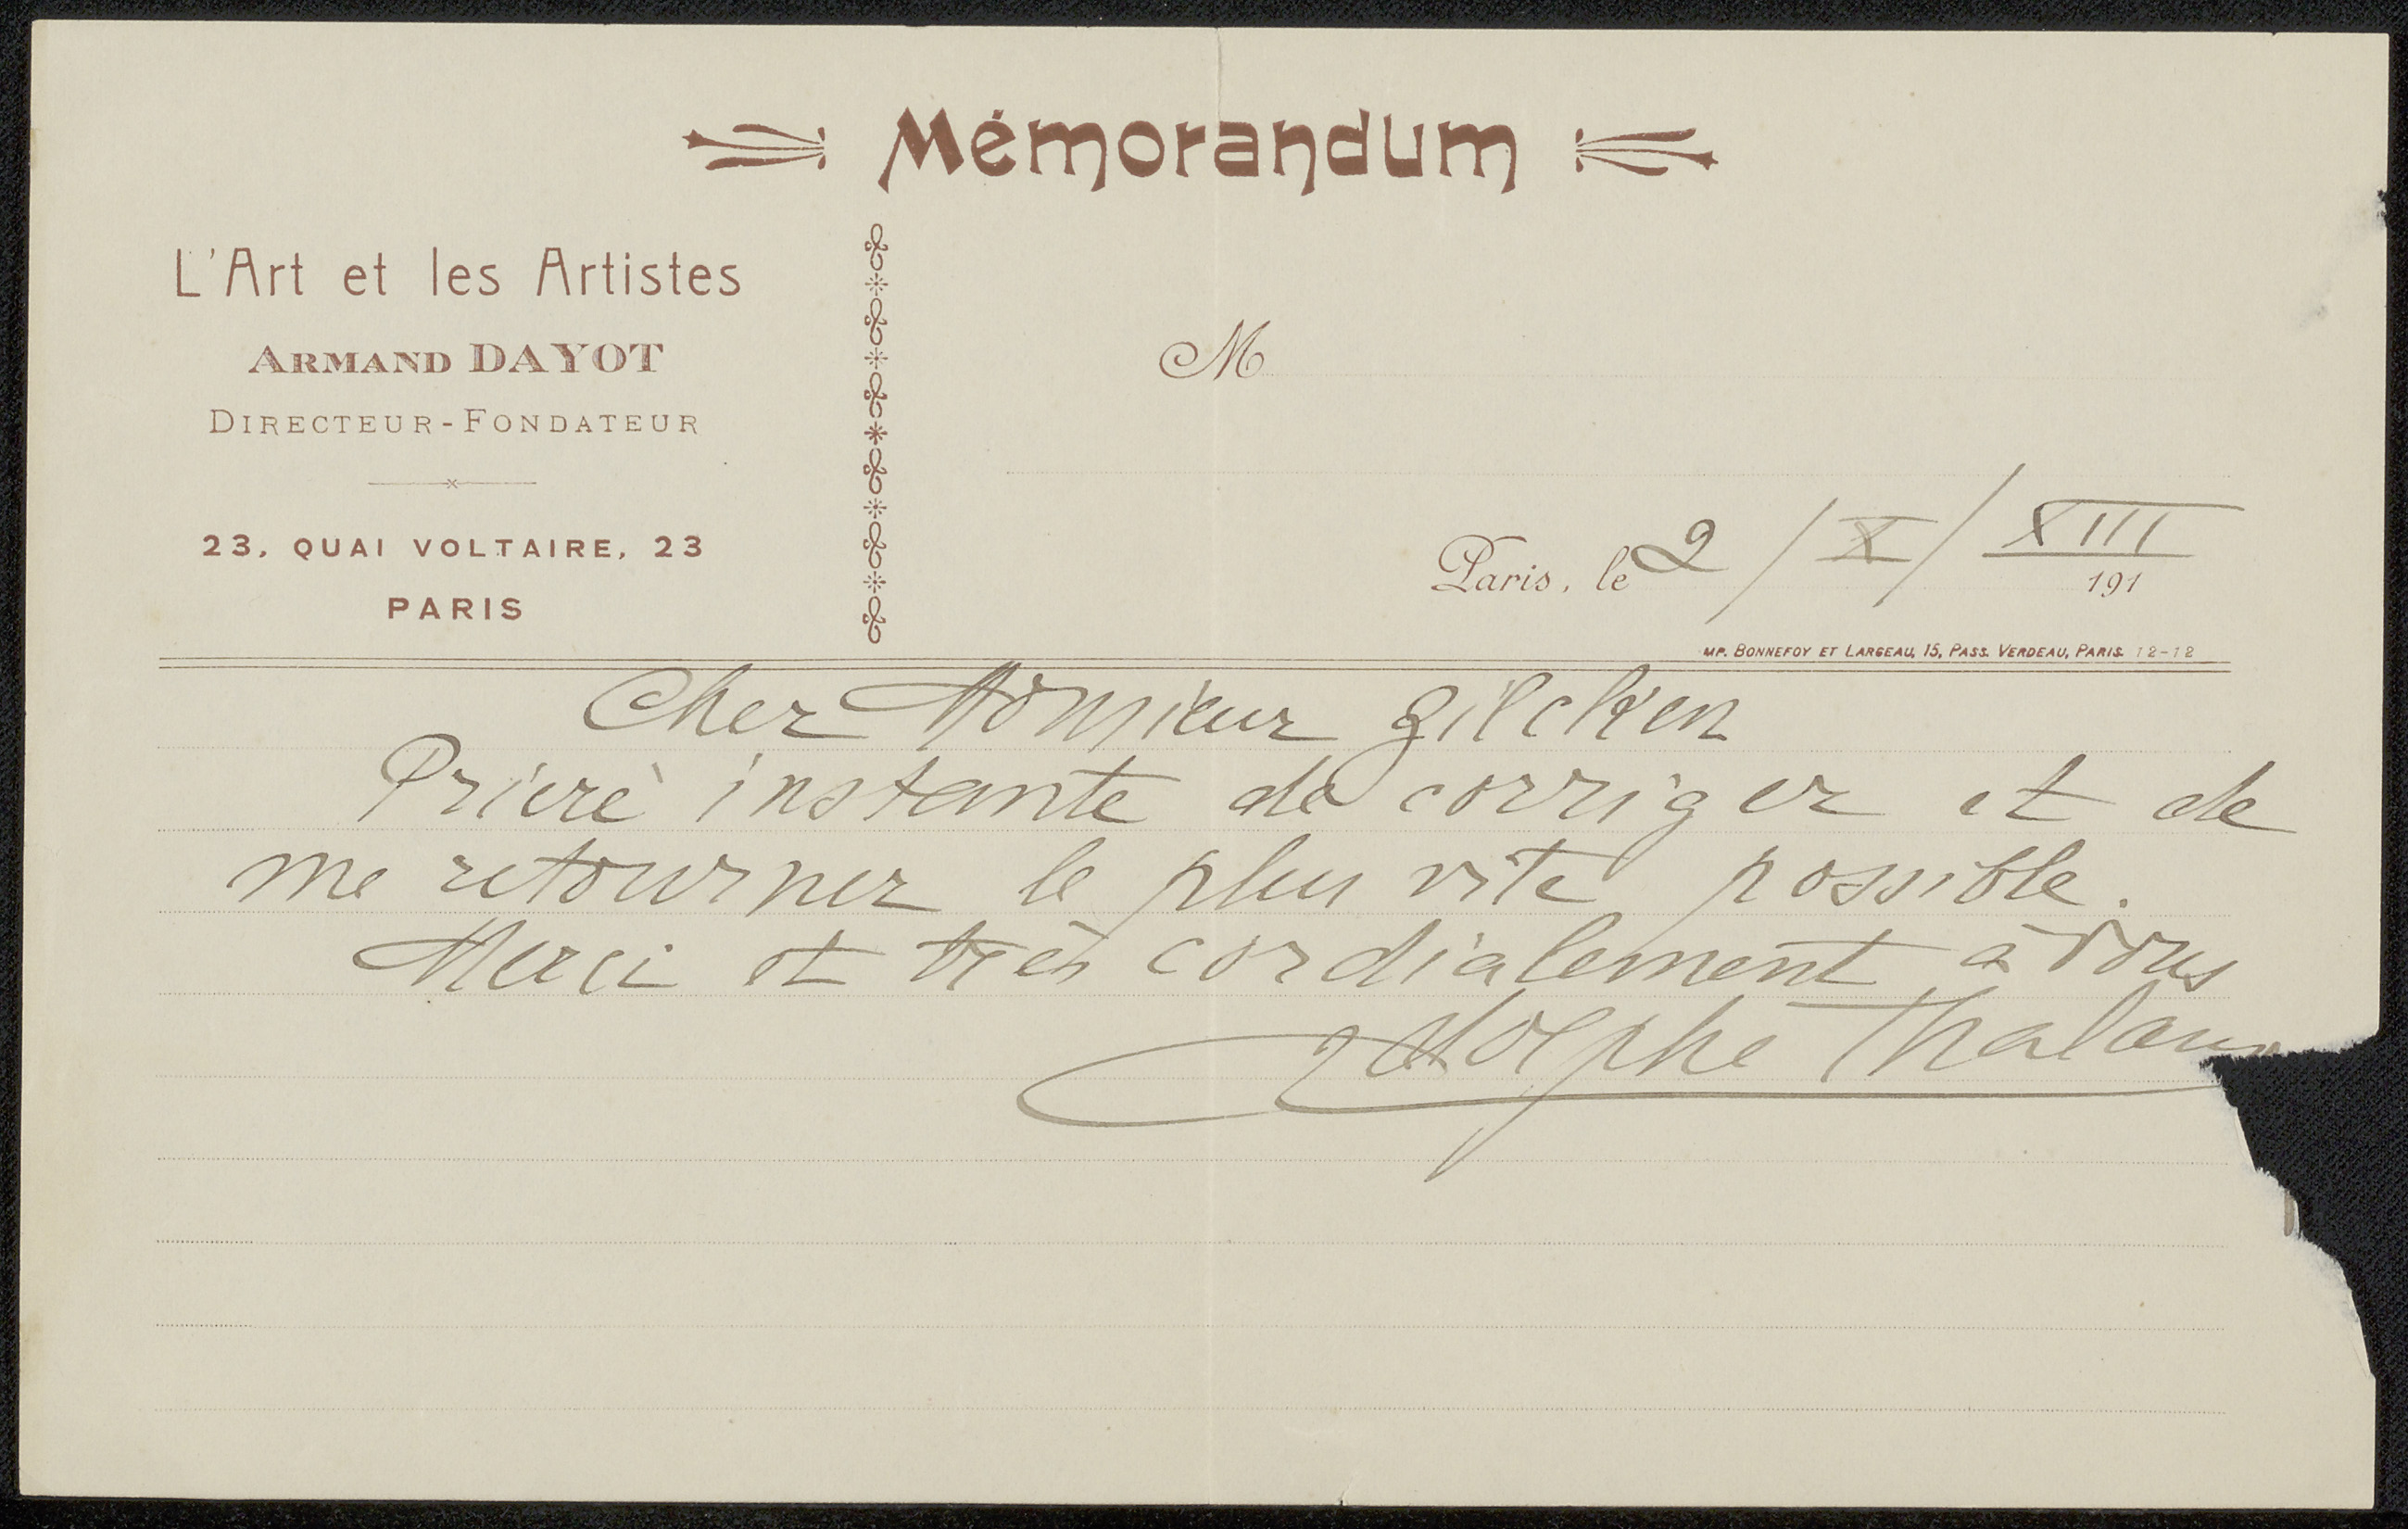 Mémorandum
L'Art et les Artistes
ARMAND DAYOT
DIRECTEUR-FONDATEUR
23, QUAI VOLTAIRE, 23
PARIS
M
Paris, le 2 / X / XIII
191
MP. BONNEFOY ET LARGEAU, 15, PASS. VERDEAU, PARIS 12-12
Cher Monsieur Zilcken
Prière instante de corriger et de
me retourner le plus vite possible.
Merci et très cordialement à vous
Adolphe Thalasso